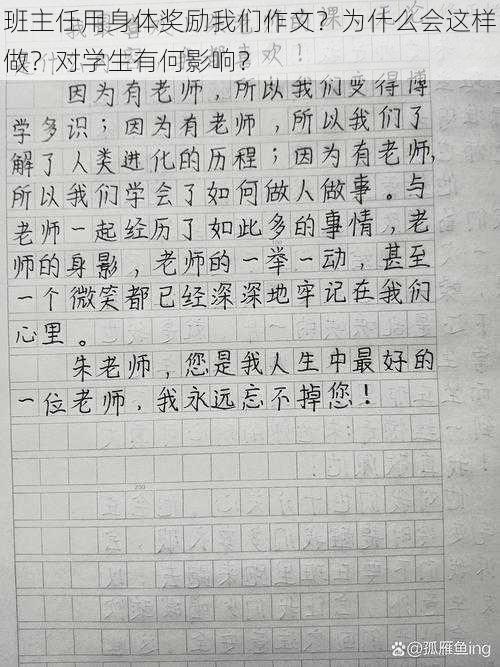 班主任用身体奖励我们作文？为什么会这样
做？对学生有何影响？
因为有老师，所以我们变得博
学多识；因为有老师，所以我们了
解了人类进化的历程；因为有老师，
所以我们学会了如何做人做事。与
老师一起经历了如此多的事情，老
师的身影，老师的一举一动，甚至
一个微笑都已经深深地牢记在我们
心里。
朱老师，您是我人生中最好的
一位老师，我永远忘不掉您！
250
@孤雁鱼ing